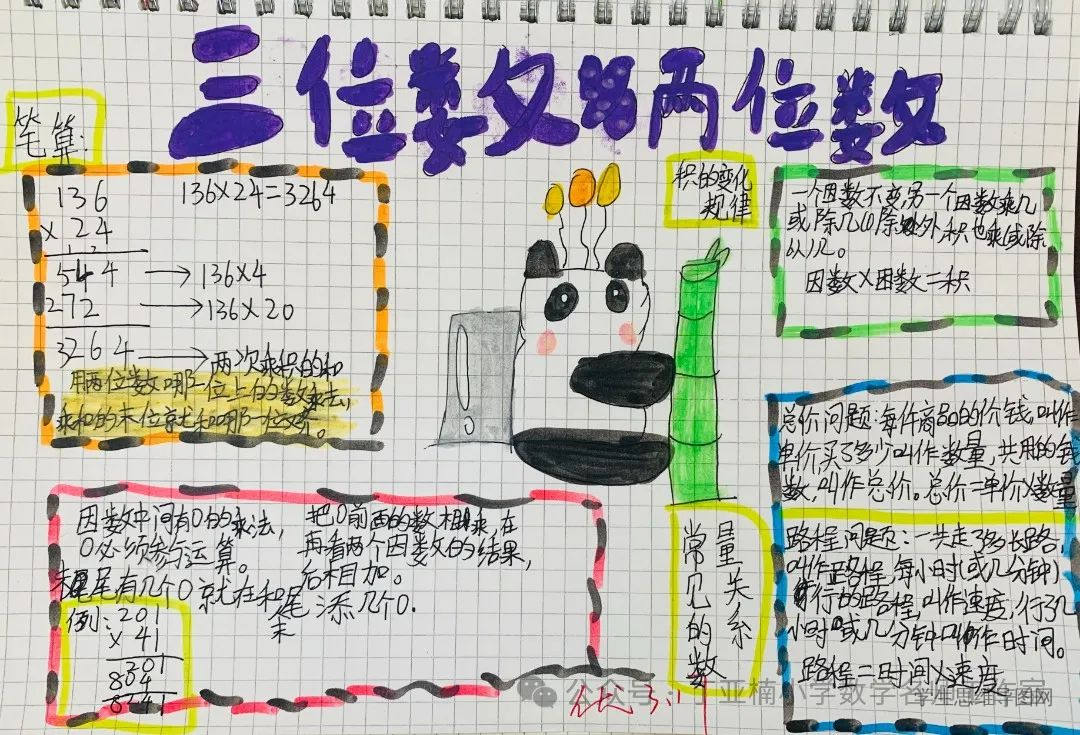 三位数乘两位数
笔算:
136
136×24=3264
× 24
1 2
544 → 136×4
272 → 136×20
3264 → 两次乘积的和
用两位数哪一位上的数乘去,
乘积的末位就和哪一位对齐。
积的变化
规律
一个因数不变,另一个因数乘几
或除几(0除外),积也乘(或除
以)几。
因数×因数=积
总价问题:每件商品的价钱,叫作
单价买了多少叫作数量,共用的钱
数,叫作总价。总价=单价×数量
常见的数
量关系
路程问题:一共走了多长路,
叫作路程,每小时(或几分钟)
行的路程,叫作速度,行了几
小时或几分钟叫作时间。
路程=时间×速度
因数中间有0的乘法,
0必须参与运算。
末尾有几个0就在积末尾添几个0.
把0前面的数相乘,在
再看两个因数的结果,
后相加。
例:201
× 41
201
804
8241
3.17
公众号:
亚楠小学数学名
学生思维导图网